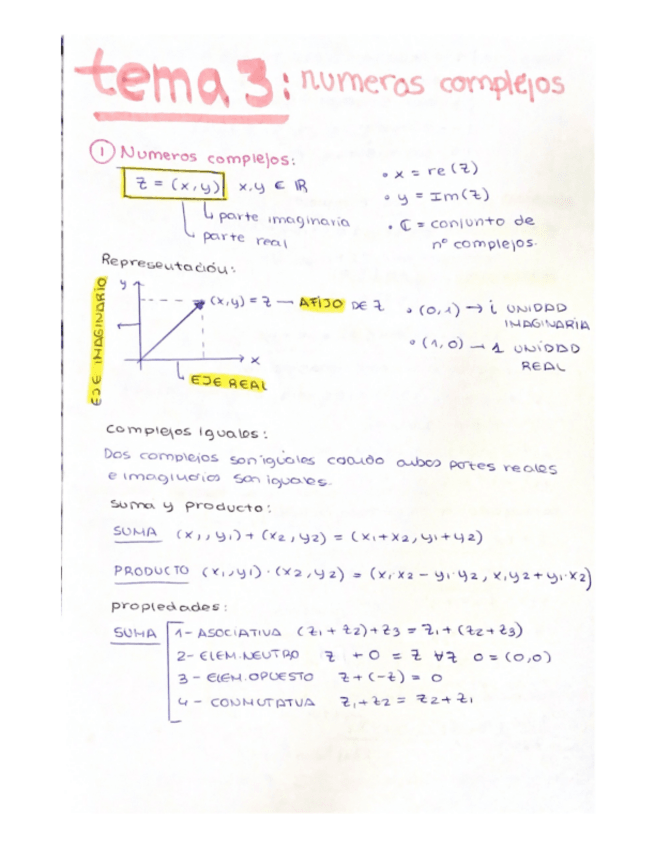 tema 3: numeros complejos
① Numeros complejos:
z = (x,y) x,y ∈ ℝ
parte imaginaria
parte real
• x = re(z)
• y = Im(z)
• ℂ = conjunto de
nº complejos.
Representación:
EJE IMAGINARIO
y
(x,y) = z — AFIJO DE z
x
EJE REAL
• (0,1) → i UNIDAD
IMAGINARIA
• (1,0) → 1 UNIDAD
REAL
complejos iguales:
Dos complejos son iguales cuando ambas partes reales
e imaginarios son iguales.
suma y producto:
SUMA (x₁, y₁) + (x₂, y₂) = (x₁+x₂, y₁+y₂)
PRODUCTO (x₁, y₁) · (x₂, y₂) = (x₁·x₂ - y₁·y₂, x₁y₂ + y₁·x₂)
propiedades:
SUMA 1- ASOCIATIVA (z₁ + z₂) + z₃ = z₁ + (z₂+z₃)
2- ELEM.NEUTRO z + 0 = z ∀z 0 = (0,0)
3 - ELEM.OPUESTO z + (-z) = 0
4 - CONMUTATVA z₁+z₂ = z₂+z₁